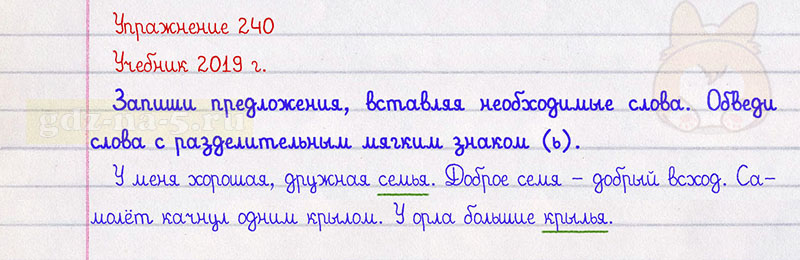 Упражнение 240
Учебник 2019 г.
Запиши предложения, вставляя необходимые слова. Обведи
слова с разделительным мягким знаком (ь).
У меня хорошая, дружная семья. Доброе семя – добрый всход. Са-
молёт качнул одним крылом. У орла большие крылья.
gdz-na-5.ru